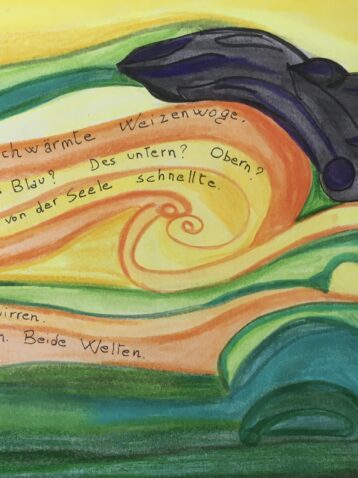 chwärmte Weizenwoge.
Blau? Des untern? Obern?
von der Seele schnellte.
irren.
n. Beide Welten.